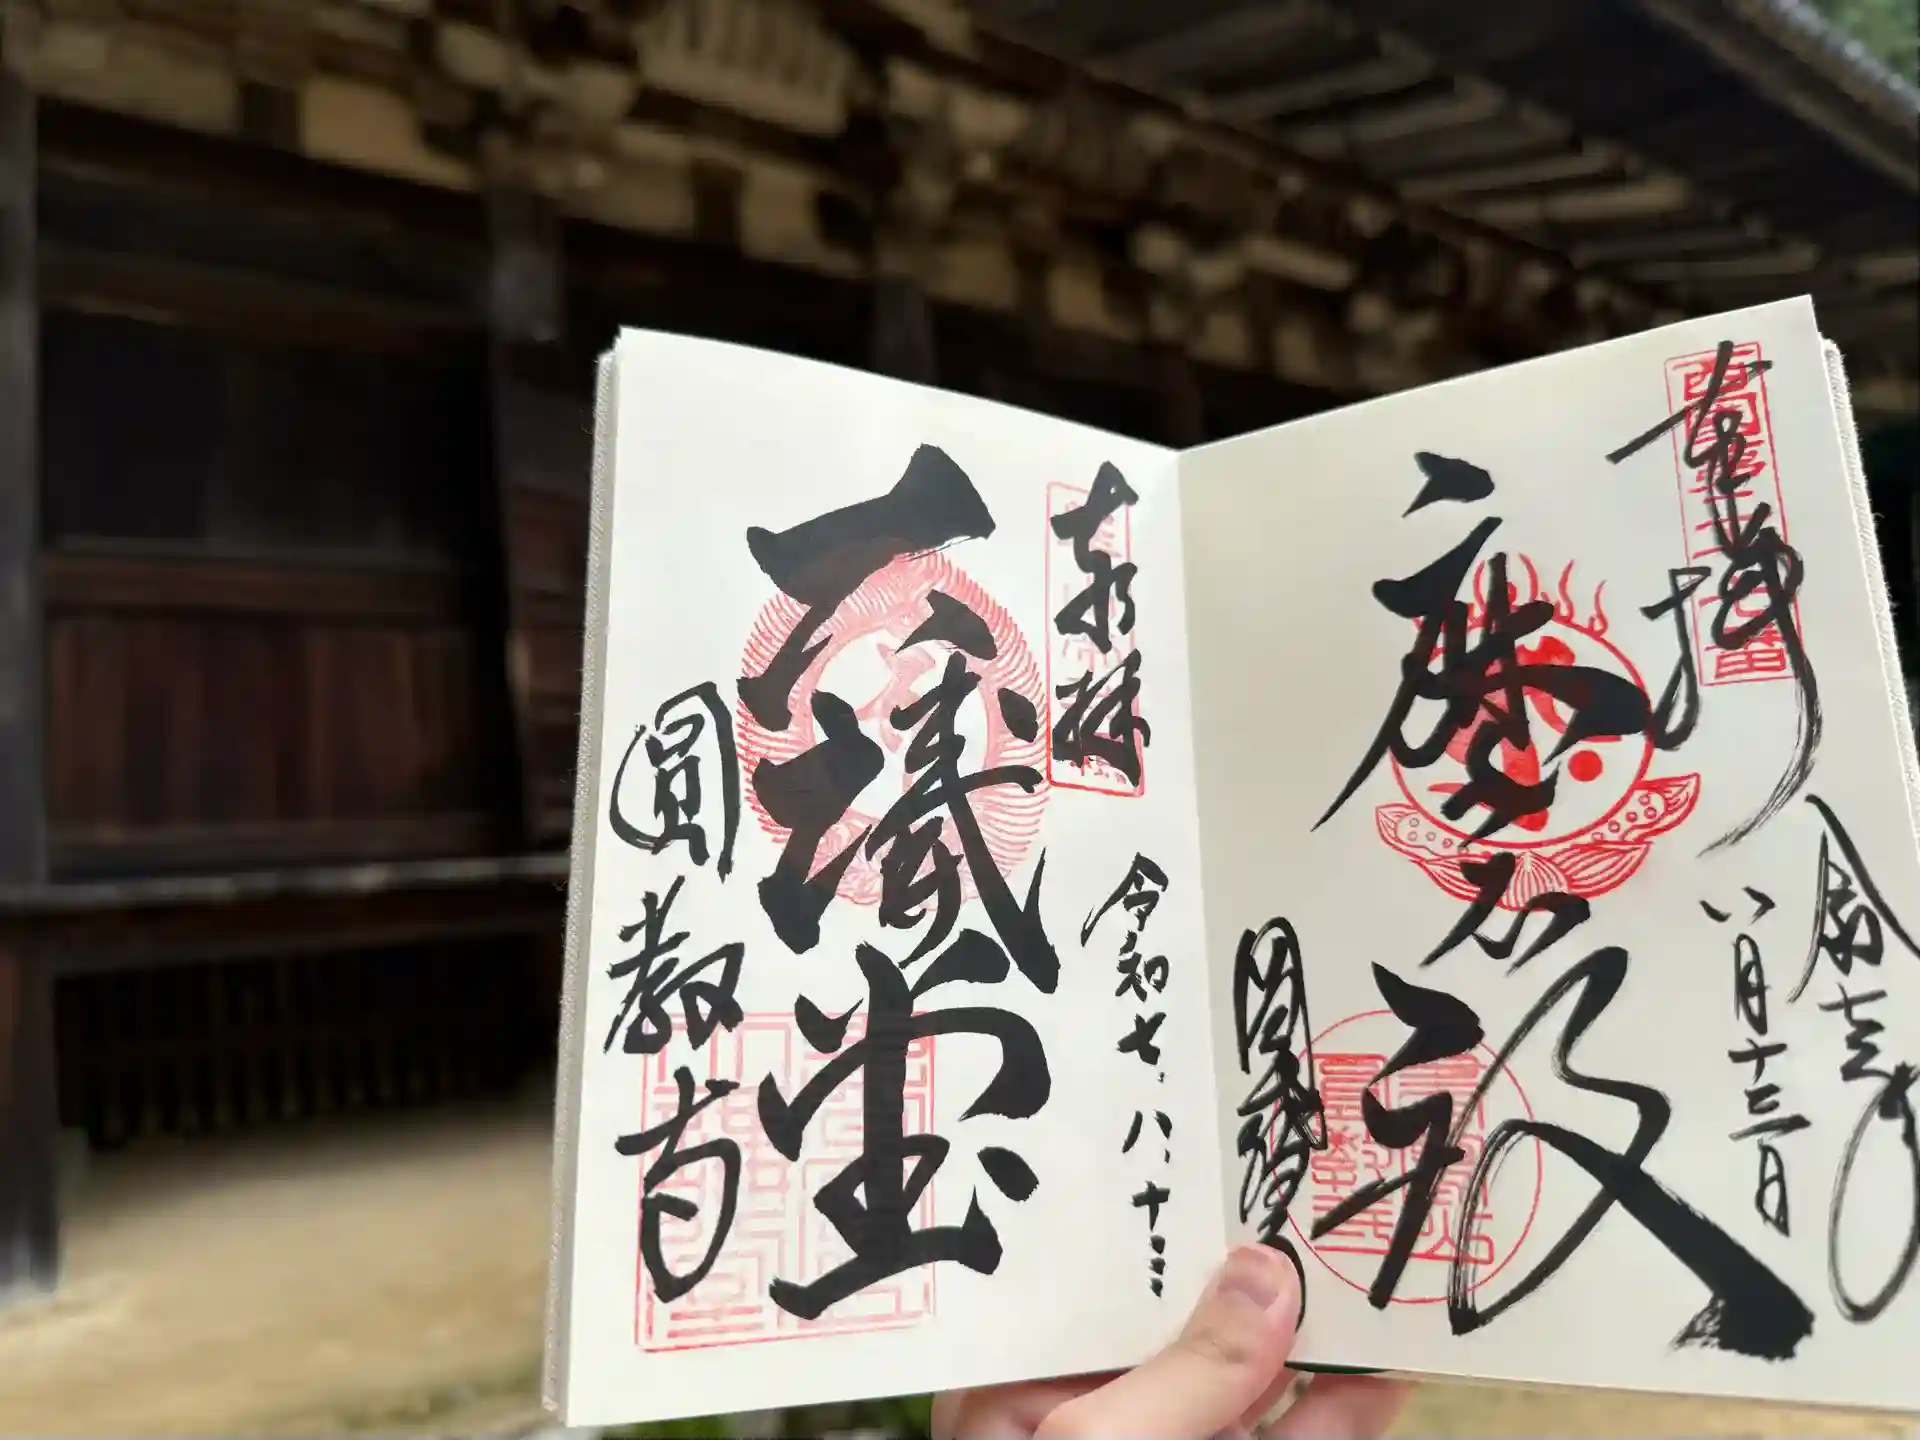 奉拝
西國第二十七番
令和七年
八月十三日
摩尼殿
圓教寺
奉拝
令和七、八、十三
大講堂
圓教寺